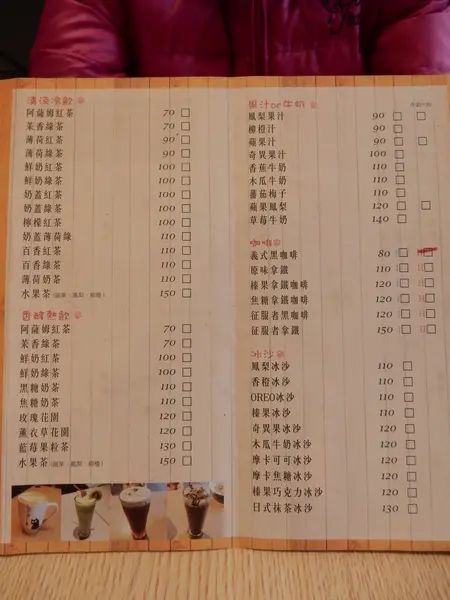 清涼冷飲
阿薩姆紅茶 70
茉香綠茶 70
薄荷紅茶 90
薄荷綠茶 90
鮮奶紅茶 100
鮮奶綠茶 100
奶蓋紅茶 100
奶蓋綠茶 100
檸檬紅茶 100
奶蓋薄荷綠 110
百香紅茶 110
百香綠茶 110
薄荷奶茶 110
水果茶(蘋果、鳳梨、柳橙) 150
香醇熱飲
阿薩姆紅茶 70
茉香綠茶 70
鮮奶紅茶 100
鮮奶綠茶 100
黑糖奶茶 110
焦糖奶茶 110
玫瑰花園 120
薰衣草花園 120
藍莓果粒茶 130
水果茶(蘋果、鳳梨、柳橙) 150
果汁or牛奶
鳳梨果汁 90
柳橙汁 90
蘋果汁 90
奇異果汁 100
香蕉牛奶 110
木瓜牛奶 110
蕃茄梅子 110
蘋果鳳梨 120
草莓牛奶 140
咖啡
義式黑咖啡 80
原味拿鐵 110
榛果拿鐵咖啡 120
焦糖拿鐵咖啡 120
征服者黑咖啡 120
征服者拿鐵 150
冰沙
鳳梨冰沙 110
香橙冰沙 110
OREO冰沙 110
榛果冰沙 110
奇異果冰沙 120
木瓜牛奶冰沙 120
摩卡可可冰沙 120
摩卡焦糖冰沙 120
榛果巧克力冰沙 120
日式抹茶冰沙 130